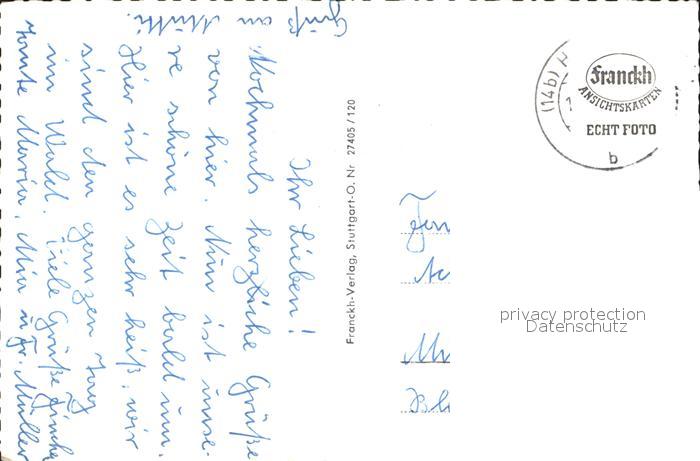 Ihr Lieben!
Nochmals herzliche Grüße
von hier. Nun ist unse-
re schöne Zeit bald um.
Hier ist es sehr heiß, wir
sind den ganzen Tag
im Wald. Viele Grüße
Tante Maria, u. Fr. Müller
Gruß an Mutti.
Franckh-Verlag, Stuttgart-O. Nr 27405/120
(14b)
Franckh
ANSICHTSKARTEN
ECHT FOTO
b
privacy protection
Datenschutz